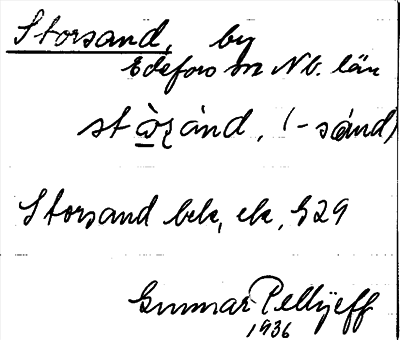 Storsand, by
Edefors sn Nb. län
stòránd, (-sánd)
Storsand bek, ek, G29
Gunnar Pellijeff
1936